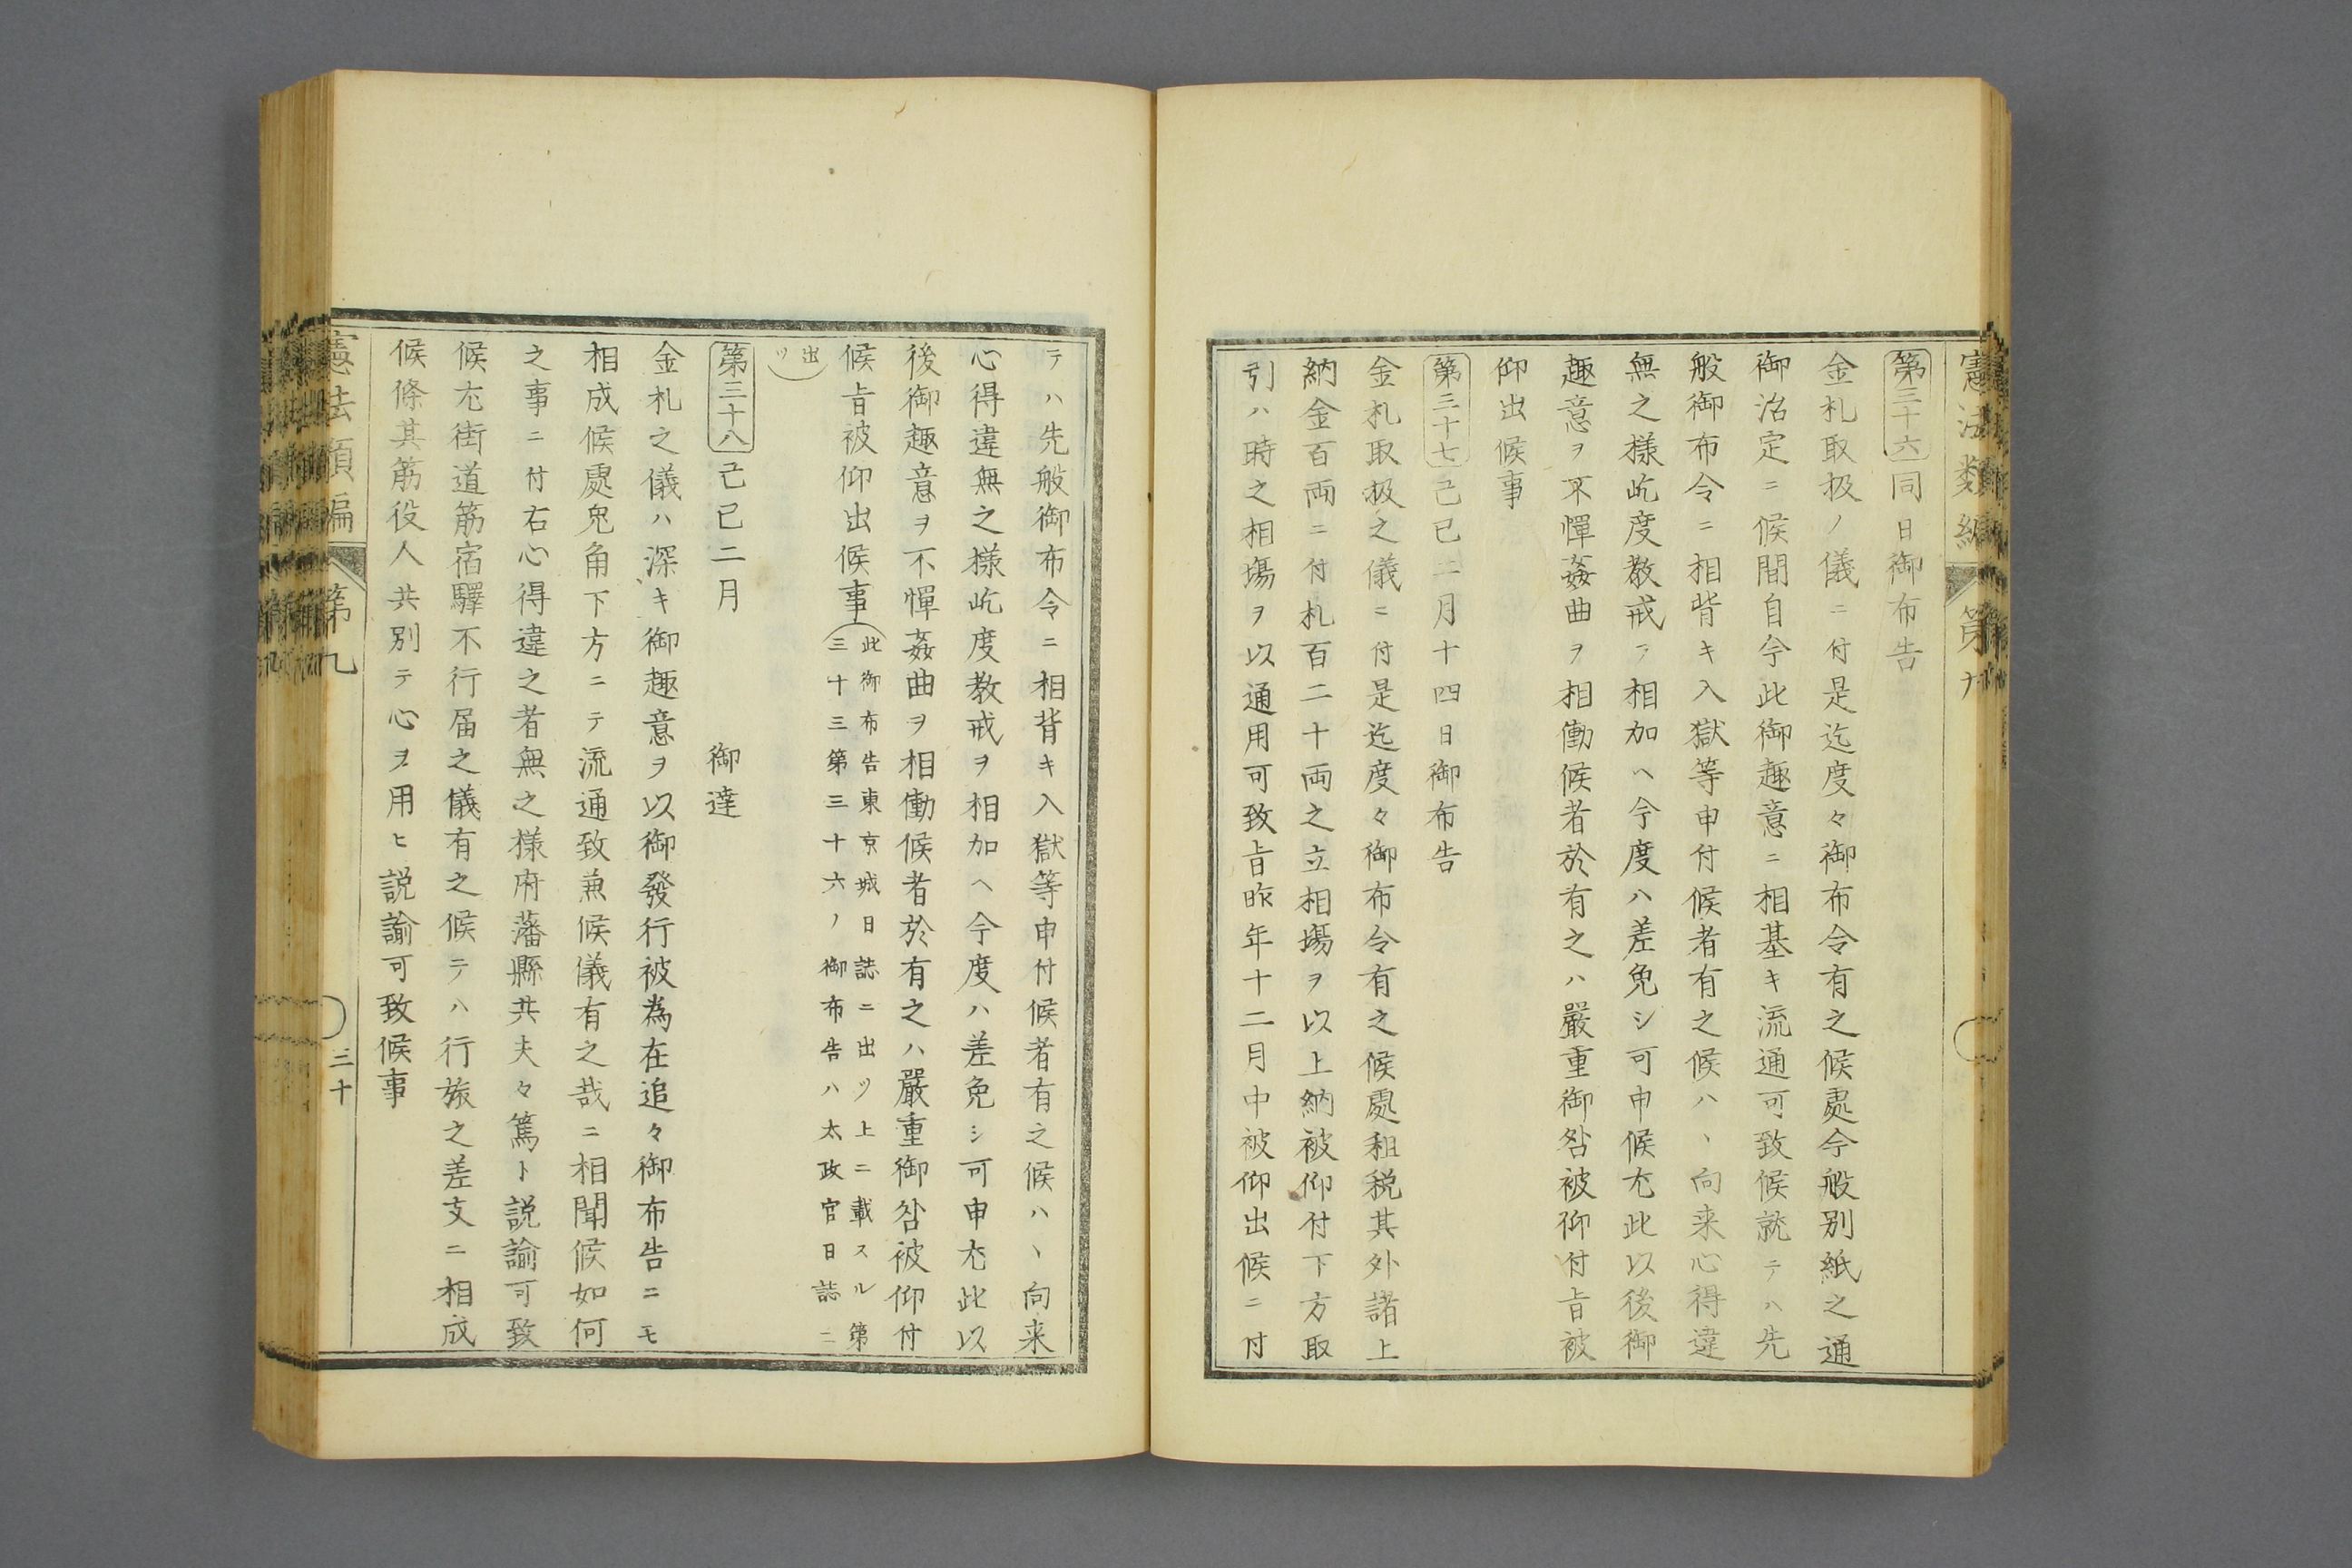 憲法類編 第九
第三十六 同日御布告
金札取扱ノ儀ニ付是迄度々御布令有之候處今般別紙之通
御治定ニ候間自今此御趣意ニ相基キ流通可致候就テハ先
般御布令ニ相背キ入獄等申付候者有之候ハヽ向来心得違
無之様屹度教戒ヲ相加ヘ今度ハ差免シ可申候尤此以後御
趣意ヲ不憚姦曲ヲ相働候者於有之ハ嚴重御咎被仰付旨被
仰出候事
第三十七 己巳二月十四日御布告
金札取扱之儀ニ付是迄度々御布令有之候處租税其外諸上
納金百両ニ付札百二十両之立相塲ヲ以上納被仰付下方取
引ハ時之相塲ヲ以通用可致旨昨年十二月中被仰出候ニ付
テハ先般御布令ニ相背キ入獄等申付候者有之候ハヽ向来
心得違無之様屹度教戒ヲ相加ヘ今度ハ差免シ可申尤此以
後御趣意ヲ不憚姦曲ヲ相働候者於有之ハ嚴重御咎被仰付
候旨被仰出候事
此御布告東京城日誌ニ出ツ上ニ載スル第
三十三第三十六ノ御布告ハ太政官日誌ニ
出ツ
第三十八 己巳二月 御達
金札之儀ハ深キ御趣意ヲ以御發行被為在追々御布告ニモ
相成候處兎角下方ニテ流通致兼候儀有之哉ニ相聞候如何
之事ニ付右心得違之者無之様府藩縣共夫々篤ト説諭可致
候尤街道筋宿驛不行届之儀有之候テハ行旅之差支ニ相成
候條其筋役人共別テ心ヲ用ヒ説諭可致候事
憲法類編 第九 三十